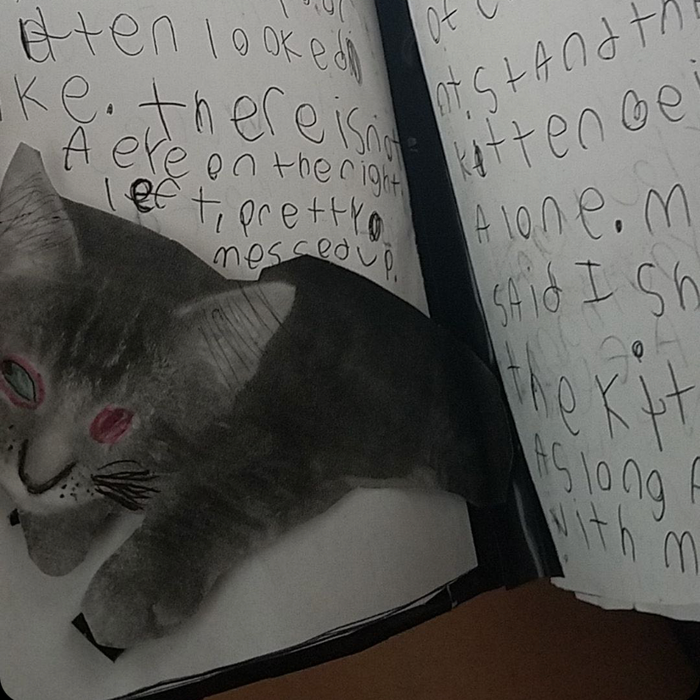 itten looked
ke. there is not
A eye on the right
left, pretty
messed up.
of
nt. stand th
kitten bei
Alone. m
said I sh
the kitt
As long A
with m